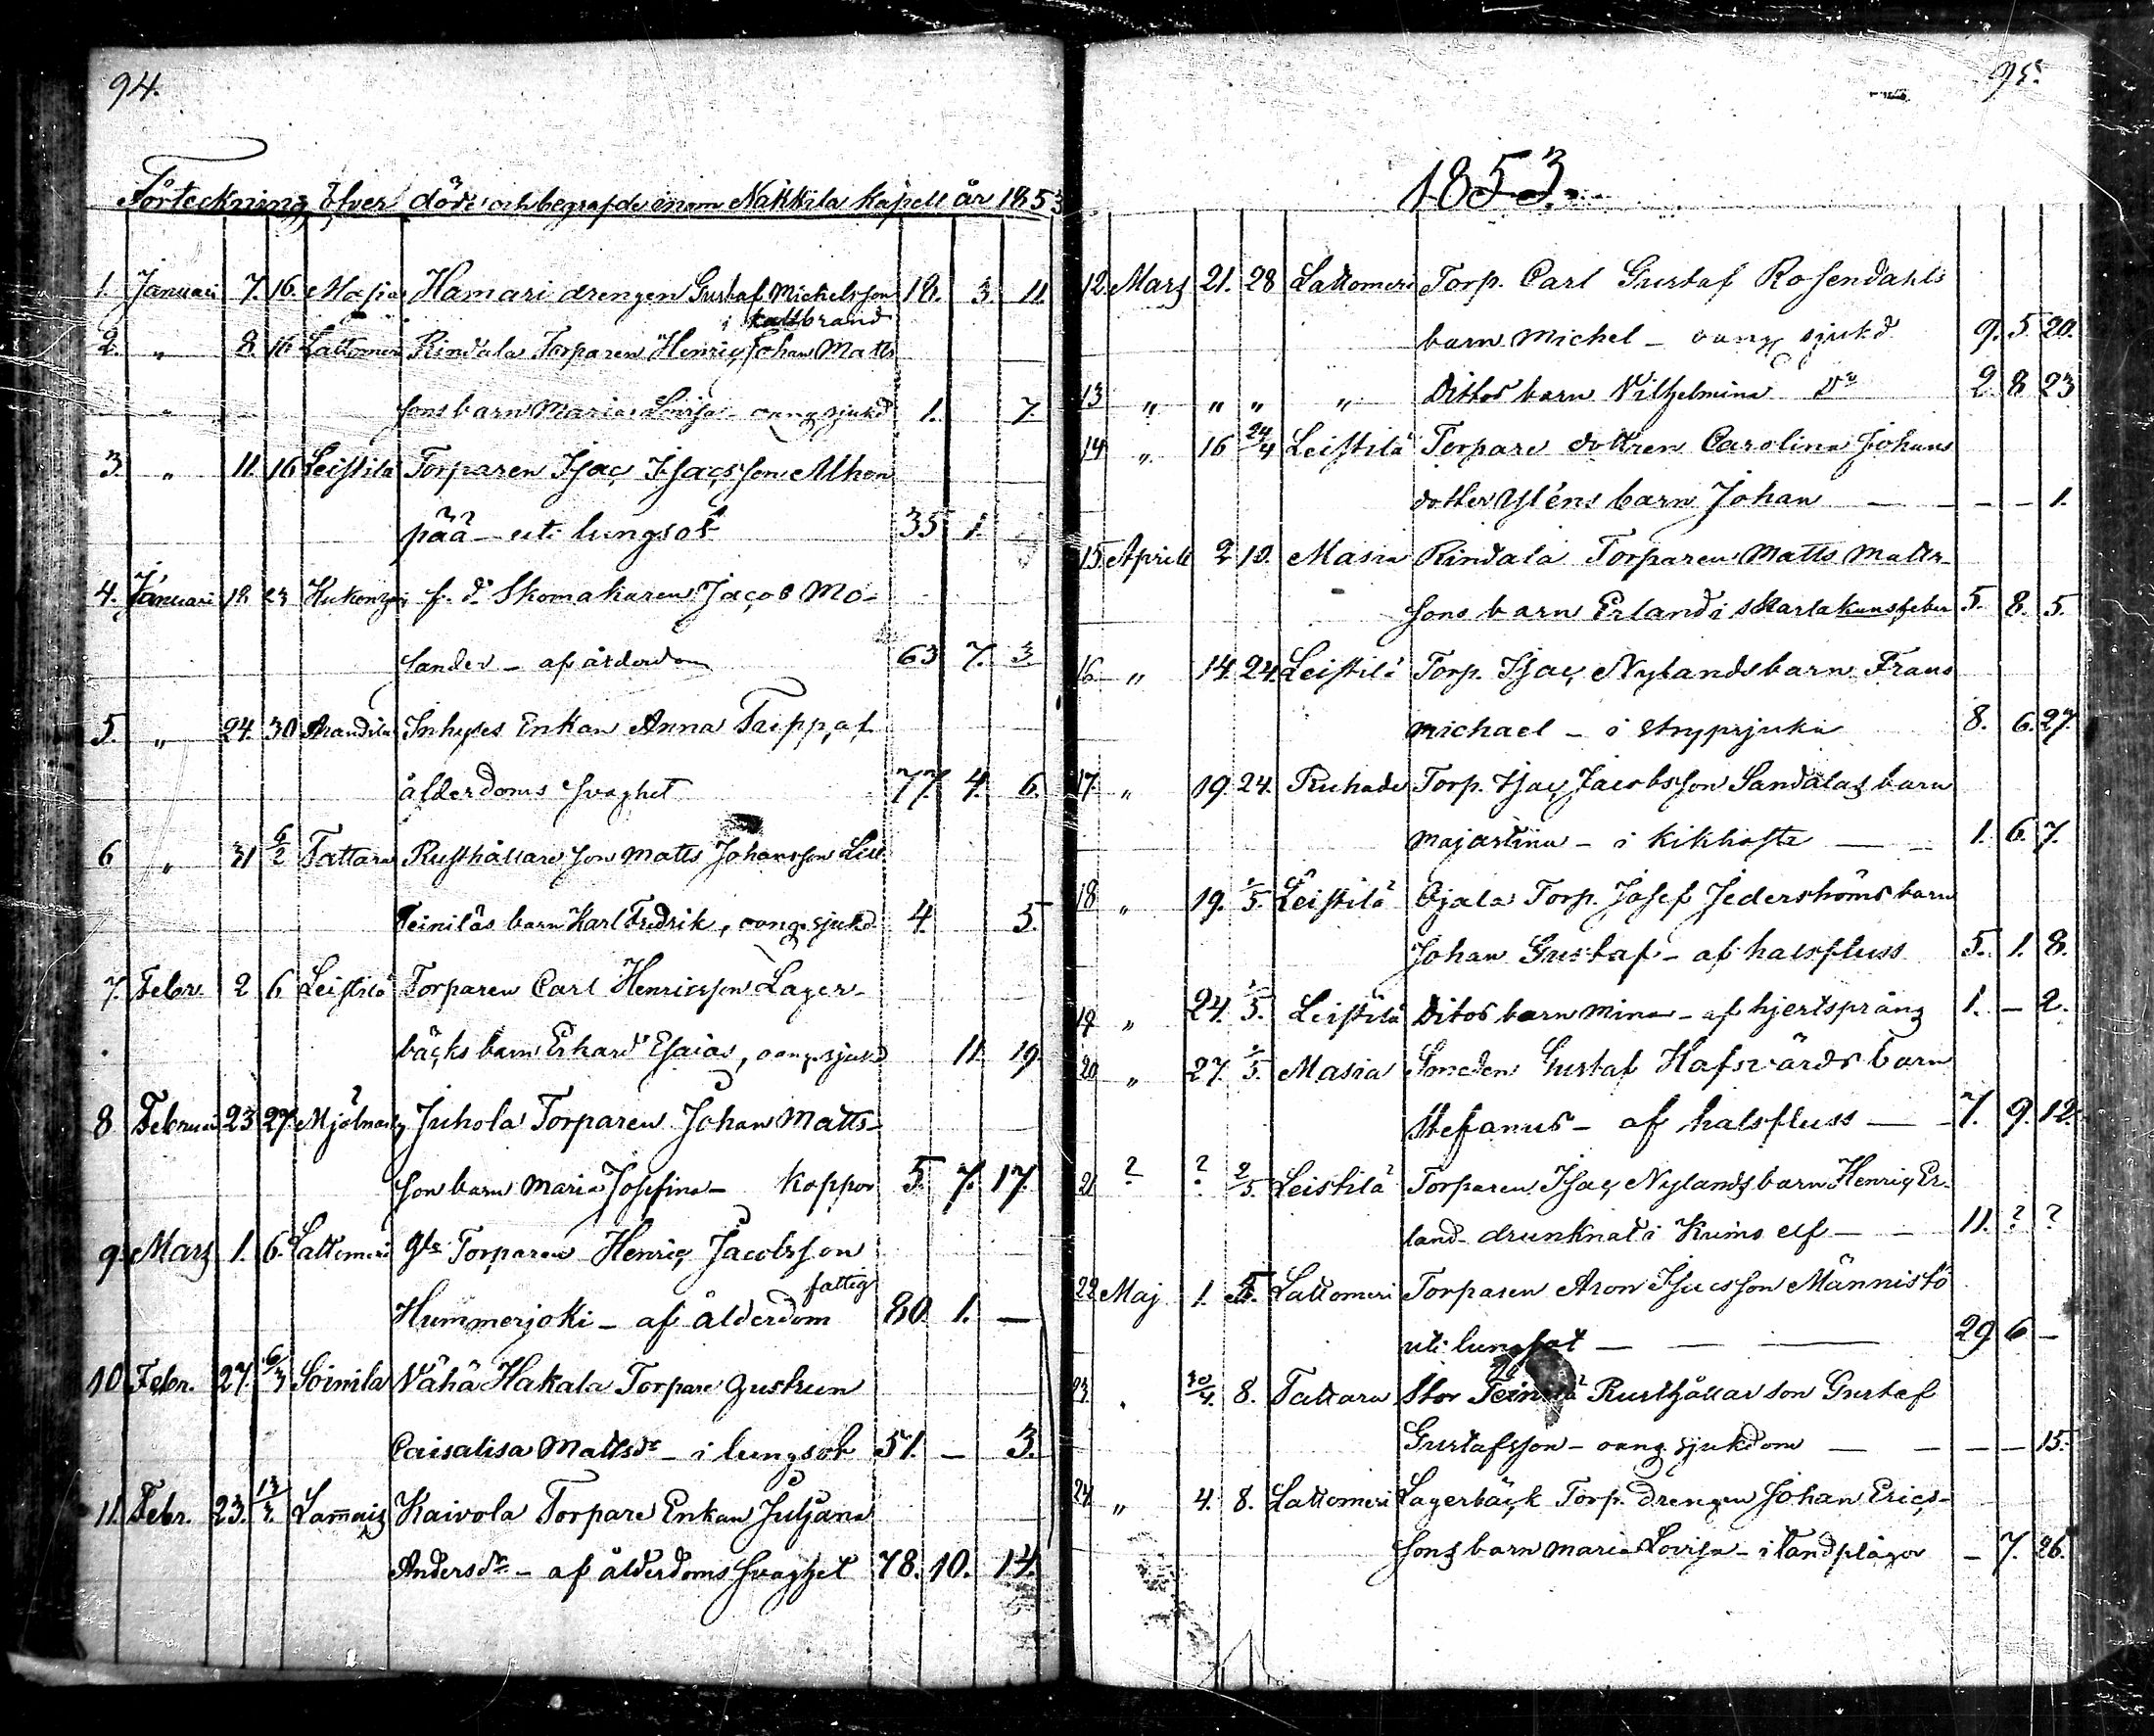 94.
Förteckning öfver döde och begrafde inom Nakkila Kapell år 1853
1. Januari 7. 16. Masia Hamari drengen Gustaf Michelsson 18. 3. 11.
i kallbrand
2. " 8. 16 Lattomeri Rindala Torparen Henric Johan Matts
" sons barn Maria Lovisa - oang sjukd 1. 7.
3. " 11. 16 Leistilä Torparen Isac Isacsson Alhon
pää - uti lungsot 35 1.
4. Januari 12 23 f. d. Skomakaren Jacob Mo-
lander - af ålderdom 63 7. 3.
5. " 24. 30 Arandila Inhyses Enkan Anna Tripp, af
ålderdoms svaghet 77. 4. 6.
6 " 31 6/2 Tattara Rusthållare son Matts Johansson Lill
Teiniläs barn Karl Fredrik, oang. sjukd. 4. 5.
7. Febr. 2 6 Leistilä Torparen Carl Henricsson Lager-
bäcks barn Erhard Esaias, oang. sjukd 11. 19.
8 Februari 23 27. Juhola Torparen Johan Matts-
son barn Maria Josefina - Koppor 5. 7. 17.
9. Mars 1. 6. Lattomeri Gle Torparen Henric Jacobsson
fattig
Hummerjoki - af ålderdom 80. 1. —
10 Febr. 27. 6/3 Soinila Nähä Hakala Torpare gustrun
Caisalisa Mattsdr - i lungsot 51. — 3.
11. Febr. 23. 13/3. Lam̄aiz Kaivola Torpare Enkan Juljana
Andersdr - af ålderdoms svaghet 78. 10. 14.
95.
1853.
12. Mars 21. 28 Lattomeri Torp. Carl Gustaf Rosendahls
barn Michel - oang sjukd 9. 5 20.
13 " " " " Dittos barn Vilhelmina Do 2 8 23
14 " 16 24/4 Leistilä Torpare dottren Carolina Johans
dotter barn Johan — — — 1.
15 Aprill 2 10. Masia Rindala Torparen Matts Matts-
sons barn Erland i skarlakansfeber 5. 8. 5.
16 " 14. 24. Leistilä Torp. Isac Nylands barn Frans
Michael - i strypsjuka 8. 6. 27.
17. " 19. 24. Ruhade Torp. Isac Jacobsson Sandalas barn
Majastina - i Kikhosta — — 1. 6. 7.
18 " 19. 1/5. Leistilä Ojala Torp. Josef Jederströms barn
Johan Gustaf - af halsfluss 5. 1. 8.
19 " 24. 1/5. Leistilä Ditos barn Mina - af hjertsprång 1. — 2.
20 " 27. 1/5. Masia Smeden Gustaf Hafsvärds barn
Stefanus - af halsfluss — — 7. 9. 12.
21 ? ? 2/5. Leistilä Torparen Isac Nylands barn Henric Er-
land drunknat i Kumo elf — — 11. ? ?
22 Maj 1. 5. Lattomeri Torparen Aron Isacsson Männistö
uti lungsot — — 29 6 —
23. . 30/4. 8. Tattara Stor Teinilä Rusthållar son Gustaf
Gustafsson - oang. sjukdom — — — — 15.
24 " 4. 8. Lattomeri Lagerbäck Torp. drengen Johan Erics-
sons barn Maria Lovisa - i tandplågor — 7. 26.